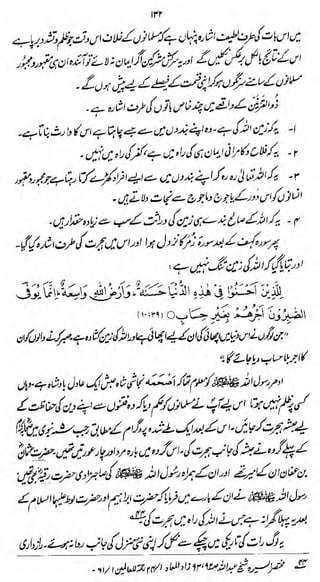 ۱۳۲
میں اس بات کی طرف لطیف اشارہ پنہاں ہے کہ مسلمانوں کے خلاف اس وقت جو ظلم و تشدد برپا ہے
اس کے نتائج بالکل برعکس نکلیں گے اور یہ سرکش مشرکین اگر ایمان نہ لائے تو آئندہ ان ہی مقہور و مجبور
مسلمانوں کے سامنے سرنگوں ہو کر اپنی قسمت کے فیصلے کے لیے پیش ہوں گے۔
ذوالقرنین کے واقعے میں چند خاص باتوں کی طرف اشارہ ہے۔
۱۔ یہ کہ زمین اللہ کی ہے۔ وہ اپنے بندوں میں سے جسے چاہتا ہے اس کا وارث بناتا ہے۔
۲۔ یہ کہ فلاح و کامرانی ایمان ہی کی راہ میں ہے، کفر کی راہ میں نہیں۔
۳۔ یہ کہ اللہ تعالیٰ رہ رہ کر اپنے بندوں میں سے ایسے افراد کھڑے کرتا رہتا ہے جو مجبور و مقہور
انسانوں کو اس دور کے یاجوج و ماجوج سے نجات دلاتے ہیں۔
۴۔ یہ کہ اللہ کے صالح بندے ہی زمین کی وراثت کے سب سے زیادہ حقدار ہیں۔
پھر سورہ کہف کے بعد سورہ زمر کا نزول ہوا اور اس میں ہجرت کی طرف اشارہ کیا گیا۔
اور بتایا گیا کہ اللہ کی زمین تنگ نہیں ہے:
لِلَّذِينَ أَحْسَنُوا فِي هَٰذِهِ الدُّنْيَا حَسَنَةٌ ۗ وَأَرْضُ اللَّهِ وَاسِعَةٌ ۗ إِنَّمَا يُوَفَّى
الصَّابِرُونَ أَجْرَهُمْ بِغَيْرِ حِسَابٍ ○ (۱۰:۳۹)
”جن لوگوں نے اس دنیا میں اچھائی کی ان کے لیے اچھائی ہے اور اللہ کی زمین کشادہ ہے۔ صبر کرنے والوں کو ان
کا اجر بلا حساب دیا جائے گا۔“
ادھر رسول اللہ ﷺ کو معلوم تھا کہ اَصْحَمَہ نجاشی شاہ حبش ایک عادل بادشاہ ہے۔ وہاں
کسی پر ظلم نہیں ہوتا اس لیے آپ نے مسلمانوں کو حکم دیا کہ وہ فتنوں سے اپنے دین کی حفاظت کے
لیے حبشہ ہجرت کر جائیں۔ اس کے بعد ایک طے شدہ پروگرام کے مطابق رجب ۵ سنہ نبوی میں صحابہ کرام
کے پہلے گروہ نے حبشہ کی جانب ہجرت کی۔ اس گروہ میں بارہ مرد اور چار عورتیں تھیں۔ حضرت عثمان
بن عفان ان کے امیر تھے اور ان کے ہمراہ رسول اللہ ﷺ کی صاحبزادی حضرت رقیہ بھی تھیں
رسول اللہ ﷺ نے ان کے بارے میں فرمایا کہ حضرت ابراہیم اور حضرت لوط علیہما السلام کے
بعد یہ پہلا گھرانہ ہے جس نے اللہ کی راہ میں ہجرت کی۔
یہ لوگ رات کی تاریکی میں چپکے سے نکل کر اپنی نئی منزل کی جانب روانہ ہوئے۔ رازداری
مختصر السیرہ شیخ عبداللہ ص ۹۲، ۹۳ زاد المعاد ۱/۲۴ رحمۃ للعالمین ۱/۶۱